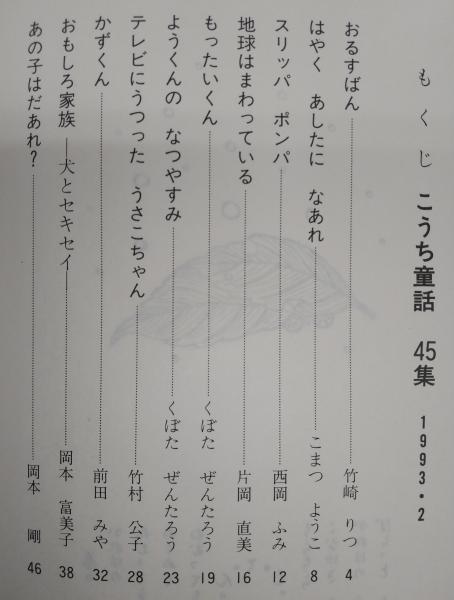 もくじ こうち童話 45集 1993・2
おるすばん 竹崎 りつ 4
はやく あしたに なあれ こまつ ようこ 8
スリッパ ポンパ 西岡 ふみ 12
地球はまわっている 片岡 直美 16
もったいくん くぼた ぜんたろう 19
ようくんの なつやすみ くぼた ぜんたろう 23
テレビにうつった うさこちゃん 竹村 公子 28
かずくん 前田 みや 32
おもしろ家族 ―犬とセキセイ― 岡本 富美子 38
あの子はだあれ? 岡本 剛 46